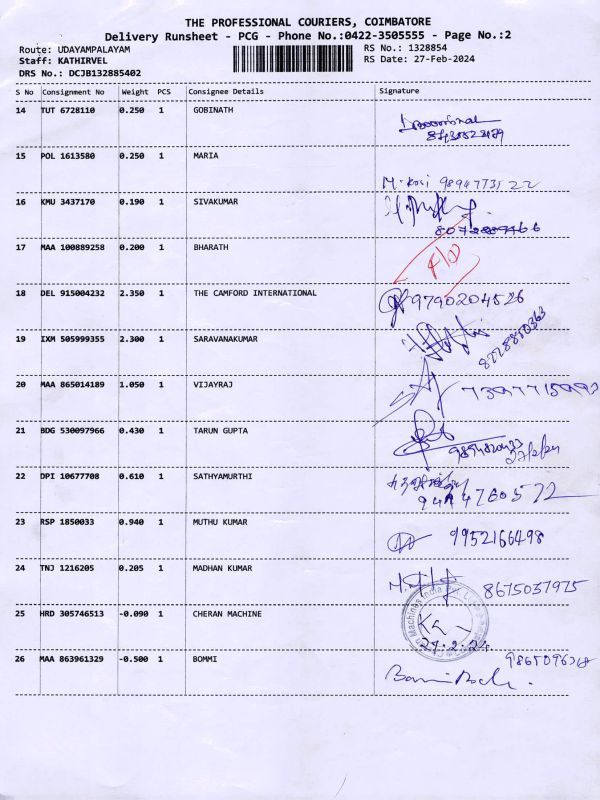 THE PROFESSIONAL COURIERS, COIMBATORE
Delivery Runsheet - PCG - Phone No.:0422-3505555 - Page No.:2
Route: UDAYAMPALAYAM
RS No.: 1328854
Staff: KATHIRVEL
RS Date: 27-Feb-2024
DRS No.: DCJB132885402
S No Consignment No Weight PCS Consignee Details Signature
14 TUT 6728110 0.250 1 GOBINATH
15 POL 1613580 0.250 1 MARIA
16 KMU 3437170 0.190 1 SIVAKUMAR
17 MAA 100889258 0.200 1 BHARATH
18 DEL 915004232 2.350 1 THE CAMFORD INTERNATIONAL 9790204526
19 IXM 505999355 2.300 1 SARAVANAKUMAR
20 MAA 865014189 1.050 1 VIJAYRAJ
21 BDG 530097966 0.430 1 TARUN GUPTA
27/2/24
22 DPI 10677708 0.610 1 SATHYAMURTHI
23 RSP 1850033 0.940 1 MUTHU KUMAR 9952166498
24 TNJ 1216205 0.205 1 MADHAN KUMAR
8675037975
25 HRD 305746513 -0.090 1 CHERAN MACHINE
26 MAA 863961329 -0.500 1 BOMMI